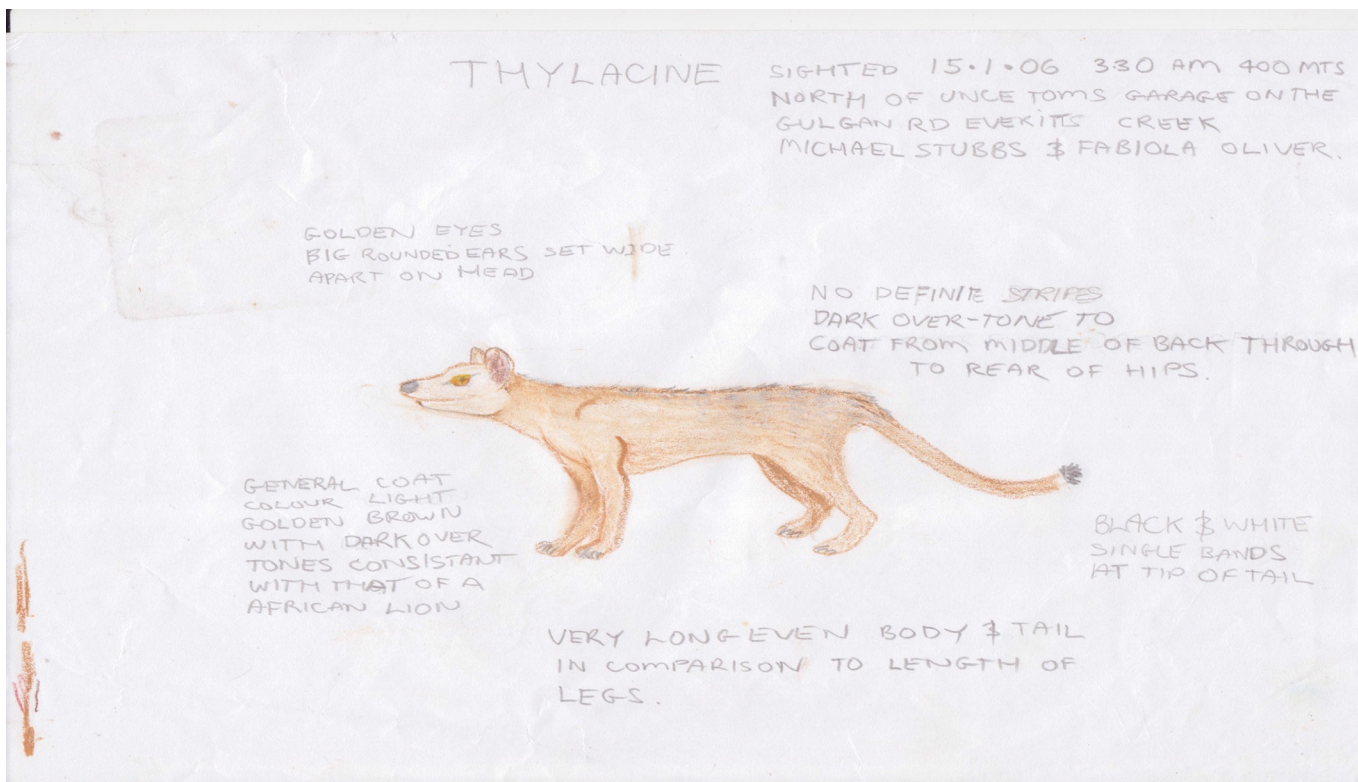 THYLACINE
SIGHTED 15.1.06 330 AM 400 MTS
NORTH OF UNCE TOMS GARAGE ON THE
GULGAN RD EVERITTS CREEK
MICHAEL STUBBS & FABIOLA OLIVER.
GOLDEN EYES
BIG ROUNDED EARS SET WIDE
APART ON HEAD
NO DEFINITE STRIPES
DARK OVER-TONE TO
COAT FROM MIDDLE OF BACK THROUGH
TO REAR OF HIPS.
GENERAL COAT
COLOUR LIGHT
GOLDEN BROWN
WITH DARK OVER
TONES CONSISTANT
WITH THAT OF A
AFRICAN LION
BLACK & WHITE
SINGLE BANDS
AT TIP OF TAIL
VERY LONG EVEN BODY & TAIL
IN COMPARISON TO LENGTH OF
LEGS.